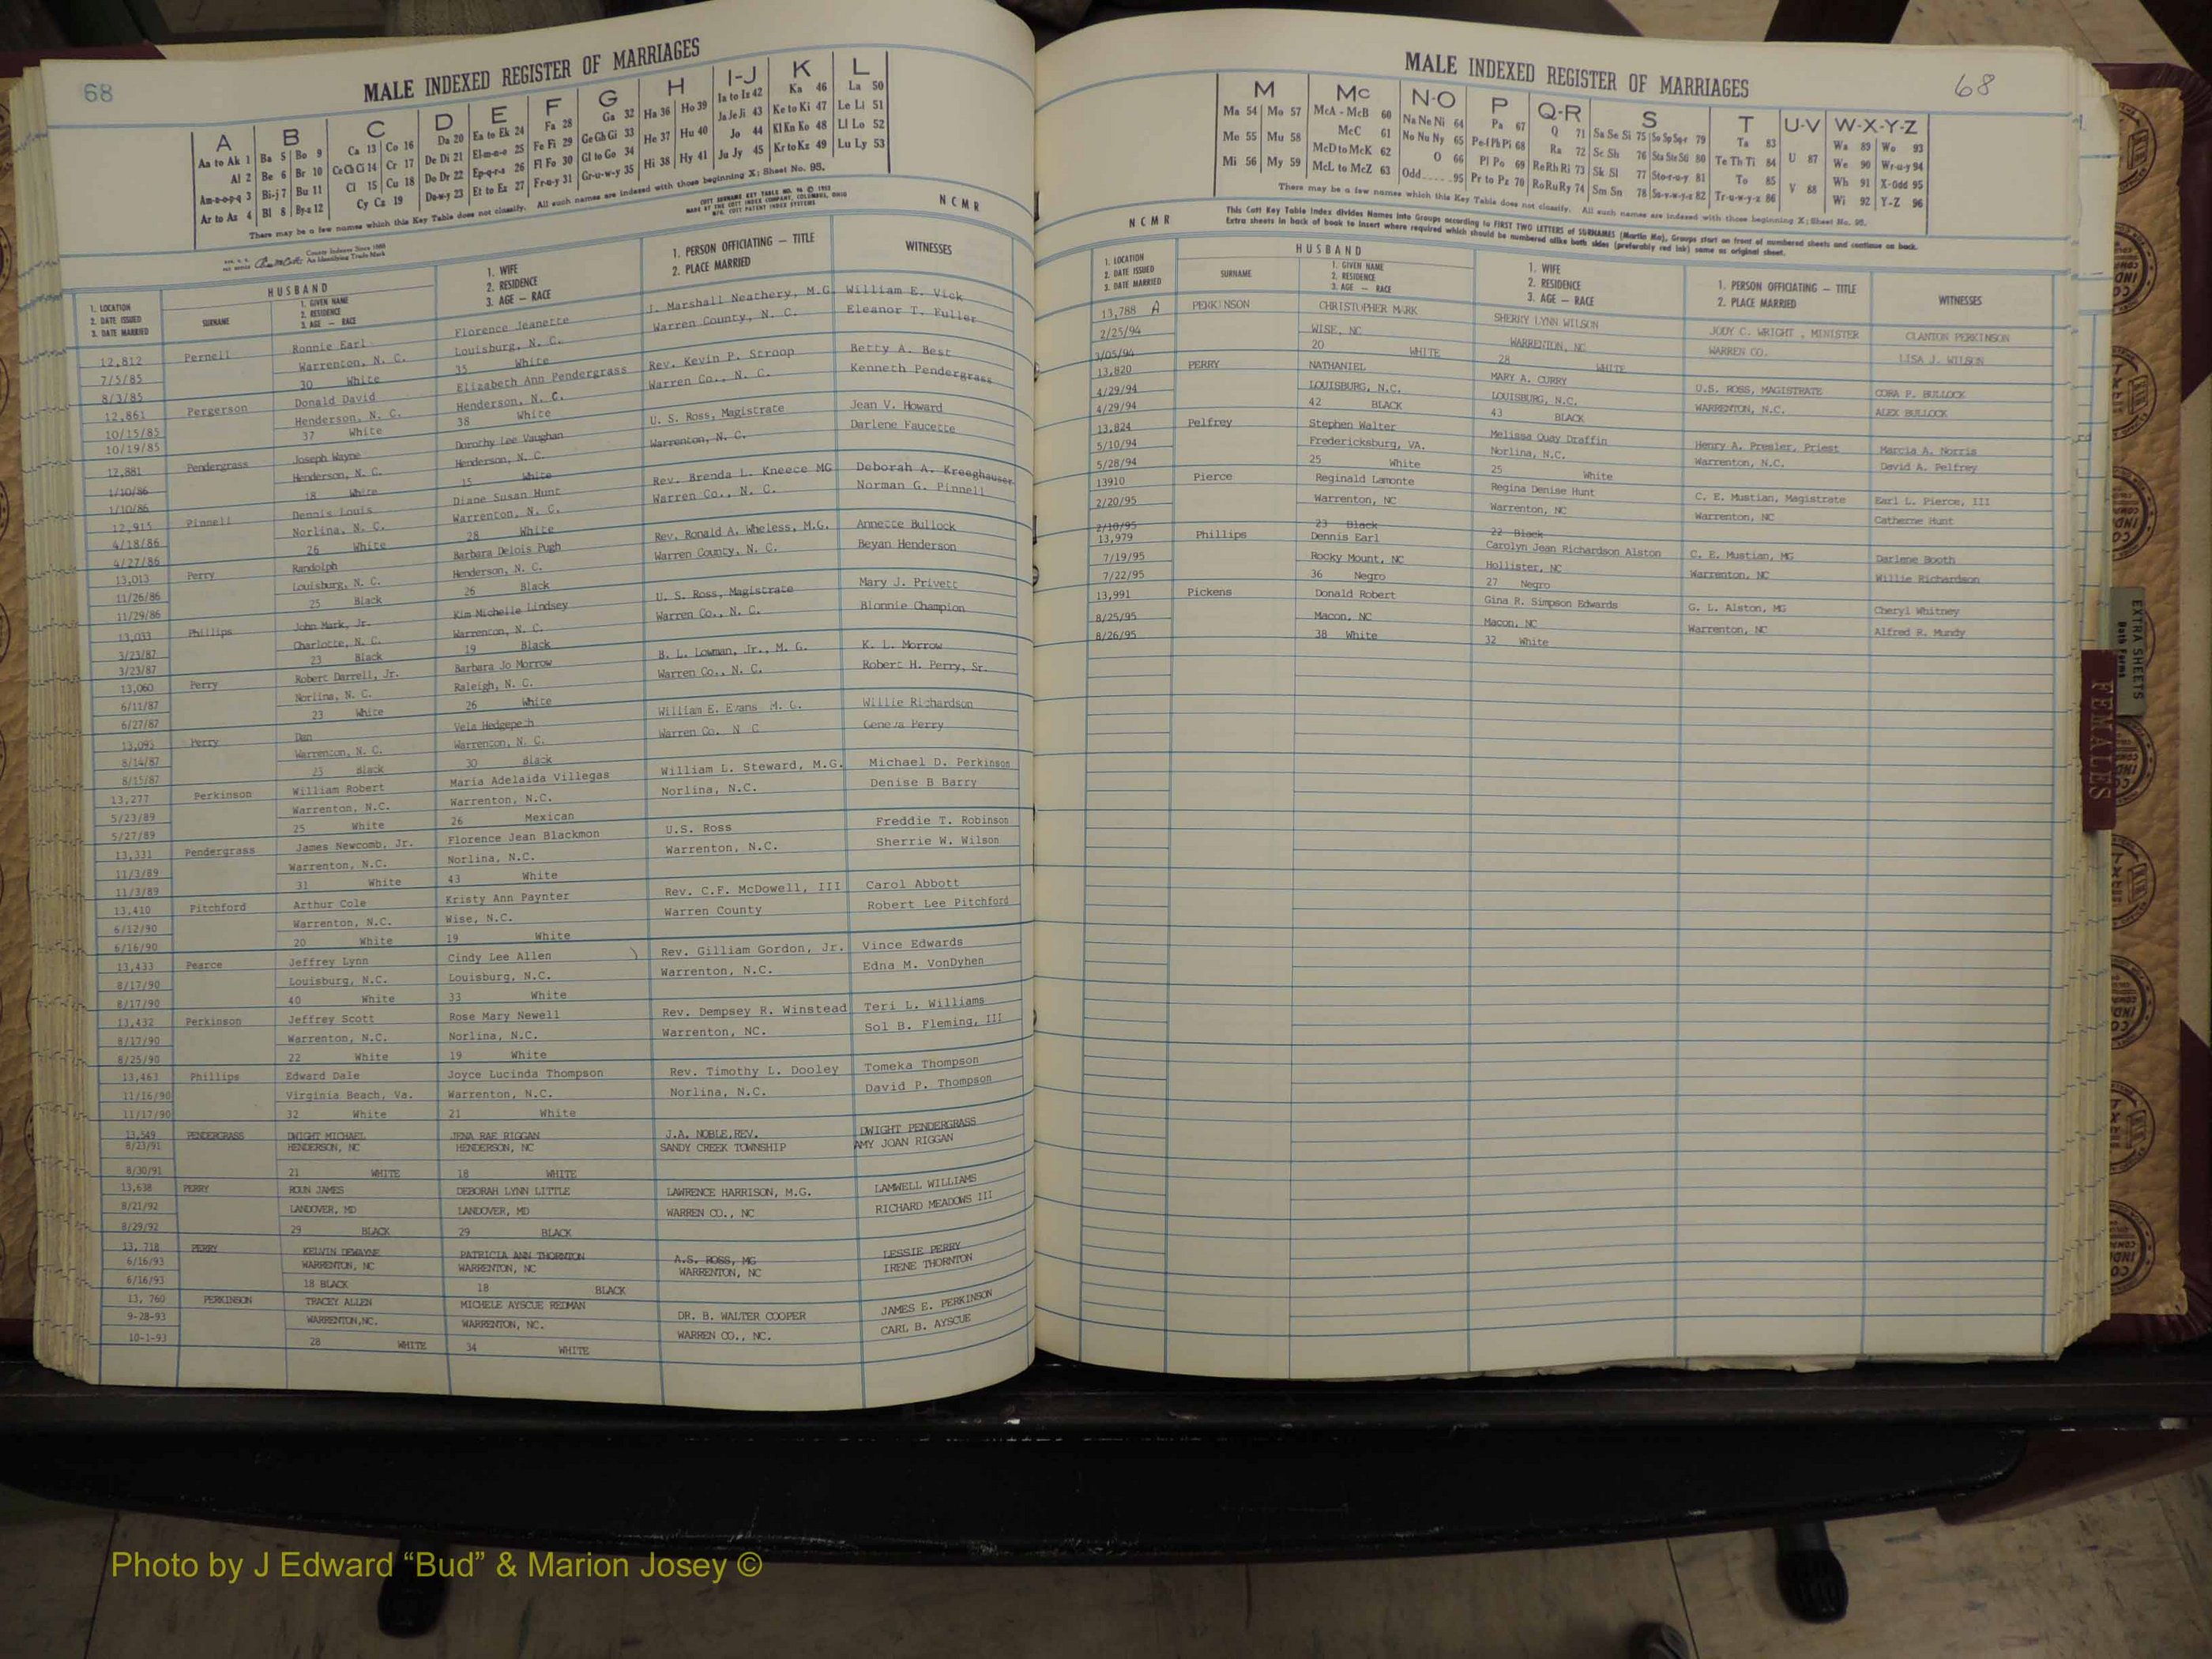 68
MALE INDEXED REGISTER OF MARRIAGES
A B C D E F G H I-J K L
Aa to Ak 1 Ba 5 Bo 9 Ca 13 Co 16 Da 20 Ea to Ek 24 Fa 28 Ga 32 Ha 36 Ho 39 Ia to Iz 42 Ka 46 La 50
Al 2 Be 6 Br 10 Ce Ch Ci 14 Cr 17 De Di 21 El-m-n-o 25 Fe Fi 29 Ge Gh Gi 33 He 37 Hu 40 Ja Je Ji 43 Ke to Ki 47 Le Li 51
Am-n-o-p-q 3 Bi-j 7 Bu 11 Cl 15 Cu 18 Do Dr 22 Ep-q-r-s 26 Fl Fo 30 Gl to Go 34 Hi 38 Hy 41 Jo 44 Kl Kn Ko 48 Ll Lo 52
Ar to Az 4 Bl 8 By-z 12 Cy Cz 19 Du-w-y 23 Et to Ez 27 Fr-u-y 31 Gr-u-w-y 35 Ju Jy 45 Kr to Kz 49 Lu Ly 53
There may be a few names which this Key Table does not classify. All such names are indexed with those beginning X; Sheet No. 95.
COTT SURNAME KEY TABLE NO.
MADE BY THE COTT INDEX COMPANY, COLUMBUS, OHIO
MFG. COTT PATENT INDEX SYSTEMS
County Indexes Since 1888
An Identifying Trade Mark
NCMR
1. LOCATION
2. DATE ISSUED
3. DATE MARRIED
HUSBAND
SURNAME
1. GIVEN NAME
2. RESIDENCE
3. AGE — RACE
1. WIFE
2. RESIDENCE
3. AGE — RACE
1. PERSON OFFICIATING — TITLE
2. PLACE MARRIED
WITNESSES
12,812 Pernell Ronnie Earl Florence Jeanette J. Marshall Neathery, M.G. William E. Vick
7/5/85 Warrenton, N. C. Louisburg, N. C. Warren County, N. C. Eleanor T. Fuller
8/3/85 30 White 35 White
12,861 Pergerson Donald David Elizabeth Ann Pendergrass Rev. Kevin P. Stroop Betty A. Best
10/15/85 Henderson, N. C. Henderson, N. C. Warren Co., N. C. Kenneth Pendergrass
10/19/85 37 White 38 White
12,881 Pendergrass Joseph Wayne Dorothy Lee Vaughan U. S. Ross, Magistrate Jean V. Howard
1/10/86 Henderson, N. C. Henderson, N. C. Warrenton, N. C. Darlene Faucette
1/10/86 18 White 15 White
12,915 Pinnell Dennis Louis Diane Susan Hunt Rev. Brenda L. Kneece MG Deborah A. Kreeghauser
4/18/86 Norlina, N. C. Warrenton, N. C. Warren Co., N. C. Norman G. Pinnell
4/27/86 26 White 28 White
13,013 Perry Randolph Barbara Delois Pugh Rev. Ronald A. Wheless, M.G. Annette Bullock
11/26/86 Louisburg, N. C. Henderson, N. C. Warren County, N. C. Beyan Henderson
11/29/86 25 Black 26 Black
13,033 Phillips John Mark, Jr. Kim Michelle Lindsey U. S. Ross, Magistrate Mary J. Privett
3/23/87 Charlotte, N. C. Warrenton, N. C. Warren Co., N. C. Blonnie Champion
3/23/87 23 Black 19 Black
13,060 Perry Robert Darrell, Jr. Barbara Jo Morrow B. L. Lowman, Jr., M. G. K. L. Morrow
6/11/87 Norlina, N. C. Raleigh, N. C. Warren Co., N. C. Robert H. Perry, Sr.
6/27/87 23 White 26 White
13,093 Perry Dan Vela Hedgepeth William E. Evans M. G. Willie Richardson
8/14/87 Warrenton, N. C. Warrenton, N. C. Warren Co. N C Geneva Perry
8/15/87 25 Black 30 Black
13,277 Perkinson William Robert Maria Adelaida Villegas William L. Steward, M.G. Michael D. Perkinson
5/23/89 Warrenton, N.C. Warrenton, N.C. Norlina, N.C. Denise B Barry
5/27/89 25 White 26 Mexican
13,331 Pendergrass James Newcomb, Jr. Florence Jean Blackmon U.S. Ross Freddie T. Robinson
11/3/89 Warrenton, N.C. Norlina, N.C. Warrenton, N.C. Sherrie W. Wilson
11/3/89 31 White 43 White
13,410 Pitchford Arthur Cole Kristy Ann Paynter Rev. C.F. McDowell, III Carol Abbott
6/12/90 Warrenton, N.C. Wise, N.C. Warren County Robert Lee Pitchford
6/16/90 20 White 19 White
13,433 Pearce Jeffrey Lynn Cindy Lee Allen ) Rev. Gilliam Gordon, Jr. Vince Edwards
8/17/90 Louisburg, N.C. Louisburg, N.C. Warrenton, N.C. Edna M. VonDyhen
8/17/90 40 White 33 White
13,432 Perkinson Jeffrey Scott Rose Mary Newell Rev. Dempsey R. Winstead Teri L. Williams
8/17/90 Warrenton, N.C. Norlina, N.C. Warrenton, NC. Sol B. Fleming, III
8/25/90 22 White 19 White
13,463 Phillips Edward Dale Joyce Lucinda Thompson Rev. Timothy L. Dooley Tomeka Thompson
11/16/90 Virginia Beach, Va. Warrenton, N.C. Norlina, N.C. David P. Thompson
11/17/90 32 White 21 White
13,549 PENDERGRASS DWIGHT MICHAEL JENA RAE RIGGAN J.A. NOBLE,REV. DWIGHT PENDERGRASS
8/23/91 HENDERSON, NC HENDERSON, NC SANDY CREEK TOWNSHIP AMY JOAN RIGGAN
8/30/91 21 WHITE 18 WHITE
13,638 PERRY ROUN JAMES DEBORAH LYNN LITTLE LAWRENCE HARRISON, M.G. LAMWELL WILLIAMS
8/21/92 LANDOVER, MD LANDOVER, MD WARREN CO., NC RICHARD MEADOWS III
8/29/92 29 BLACK 29 BLACK
13, 718 PERRY KELVIN DEWAYNE PATRICIA ANN THORNTON A.S. ROSS, MG LESSIE PERRY
6/16/93 WARRENTON, NC WARRENTON, NC WARRENTON, NC IRENE THORNTON
6/16/93 18 BLACK 18 BLACK
13, 760 PERKINSON TRACEY ALLEN MICHELE AYSCUE REDMAN DR. B. WALTER COOPER JAMES E. PERKINSON
9-28-93 WARRENTON,NC. WARRENTON, NC. WARREN CO., NC. CARL B. AYSCUE
10-1-93 28 WHITE 34 WHITE
MALE INDEXED REGISTER OF MARRIAGES
68
M Mc N-O P Q-R S T U-V W-X-Y-Z
Ma 54 Mo 57 McA - McB 60 Na Ne Ni 64 Pa 67 Q 71 Sa Se Si 75 So Sp Sq-r 79 Ta 83 Wa 89 Wo 93
Me 55 Mu 58 McC 61 No Nu Ny 65 Pe-f Ph Pi 68 Ra 72 Sc Sh 76 Sta Ste Sti 80 Te Th Ti 84 U 87 We 90 Wr-u-y 94
Mi 56 My 59 McD to McK 62 O 66 Pl Po 69 Re Rh Ri 73 Sk Sl 77 Sto-r-u-y 81 To 85 Wh 91 X-odd 95
McL to McZ 63 Odd 95 Pr to Pz 70 Ro Ru Ry 74 Sm Sn 78 Su-v-w-y-z 82 Tr-u-w-y-z 86 V 88 Wi 92 Y-Z 96
There may be a few names which this Key Table does not classify. All such names are indexed with those beginning X; Sheet No. 95.
NCMR
This Cott Key Table Index divides Names into Groups according to FIRST TWO LETTERS of SURNAMES (Martin Ma), Groups start on front of numbered sheets and continue on back.
Extra sheets in back of book to insert where required which should be numbered alike both sides (preferably red ink) same as original sheet.
1. LOCATION
2. DATE ISSUED
3. DATE MARRIED
HUSBAND
SURNAME
1. GIVEN NAME
2. RESIDENCE
3. AGE — RACE
1. WIFE
2. RESIDENCE
3. AGE — RACE
1. PERSON OFFICIATING — TITLE
2. PLACE MARRIED
WITNESSES
13,788 A PERKINSON CHRISTOPHER MARK SHERRY LYNN WILSON JODY C. WRIGHT , MINISTER CLANTON PERKINSON
2/25/94 WISE, NC WARRENTON, NC WARREN CO. LISA J. WILSON
3/05/94 20 WHITE 28 WHITE
13,820 PERRY NATHANIEL MARY A. CURRY U.S. ROSS, MAGISTRATE CORA P. BULLOCK
4/29/94 LOUISBURG, N.C. LOUISBURG, N.C. WARRENTON, N.C. ALEX BULLOCK
4/29/94 42 BLACK 43 BLACK
13,824 Pelfrey Stephen Walter Melissa Quay Draffin Henry A. Presler, Priest Marcia A. Norris
5/10/94 Fredericksburg, VA. Norlina, N.C. Warrenton, N.C. David A. Pelfrey
5/28/94 25 White 25 White
13910 Pierce Reginald Lamonte Regina Denise Hunt C. E. Mustian, Magistrate Earl L. Pierce, III
2/20/95 Warrenton, NC Warrenton, NC Warrenton, NC Catherne Hunt
2/10/95 23 Black 22 Black
13,979 Phillips Dennis Earl Carolyn Jean Richardson Alston C. E. Mustian, MG Darlene Booth
7/19/95 Rocky Mount, NC Hollister, NC Warrenton, NC Willie Richardson
7/22/95 36 Negro 27 Negro
13,991 Pickens Donald Robert Gina R. Simpson Edwards G. L. Alston, MG Cheryl Whitney
8/25/95 Macon, NC Macon, NC Warrenton, NC Alfred R. Mundy
8/26/95 38 White 32 White
EXTRA SHEETS
FEMALES
Photo by J Edward “Bud” & Marion Josey ©